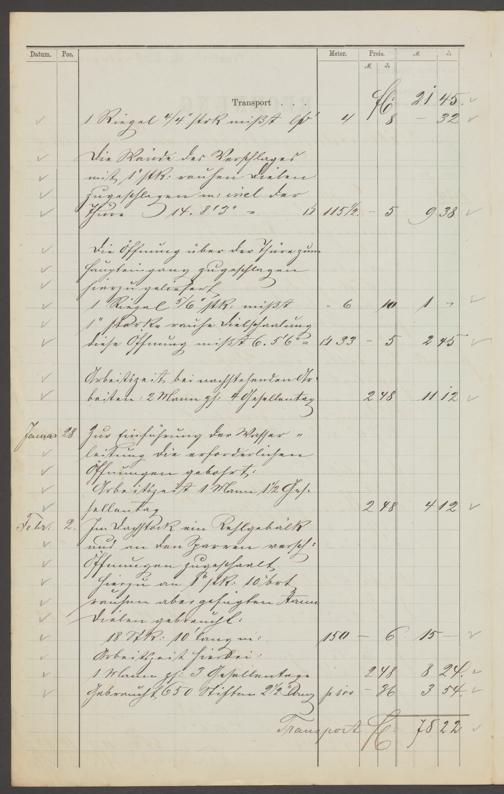 Datum. Pos. Meter. Preis. M. ₰
M. ₰
Transport . . . . M: 21 45
1 Riegel 4/4" stark mißt 4 8 – 32
Die Wände des Verschlages
mit 1" stk: rauhen Dielen
zugeschlagen incl der
Thüre 14. 8'3" = 115 1/2 – 5 9 38
Die Öffnung über der Thüre zum
Haupteingang zugeschlagen
hierzu geliefert
1 Riegel 5/6" stk. mißt – 6 10 1 –
1" starke rauhe Dielschaalung
diese Öffnung mißt 6. 5'6" = 33 – 5 2 45
Arbeitszeit bei nachstehenden Ar-
beiten: 2 Mann zs: 4 Gesellentag 2 48 11 12
Januar 28 Zur Einführung der Wasser =
leitung die erforderlichen
Öffnungen gebohrt:
Arbeitszeit 1 Mann 1 1/2 Ges:
sellentag 2 48 4 12
Febr. 2. Im Dachstock ein Kehlgebälk
und an den Sparren versch:
Öffnungen zugeschaalt
hierzu an 1" stk: 10' brt
rauhen abgefügten Tann
Dielen gebraucht:
18 Stk: 10' lang 150 – 6 15 –
Arbeitszeit hierbei:
1 Mann zs: 3 Gesellentage 2 48 8 24
Gebraucht 650 Stiften 2 1/2 p 100 – 36 3 54
Transport M: 78 22